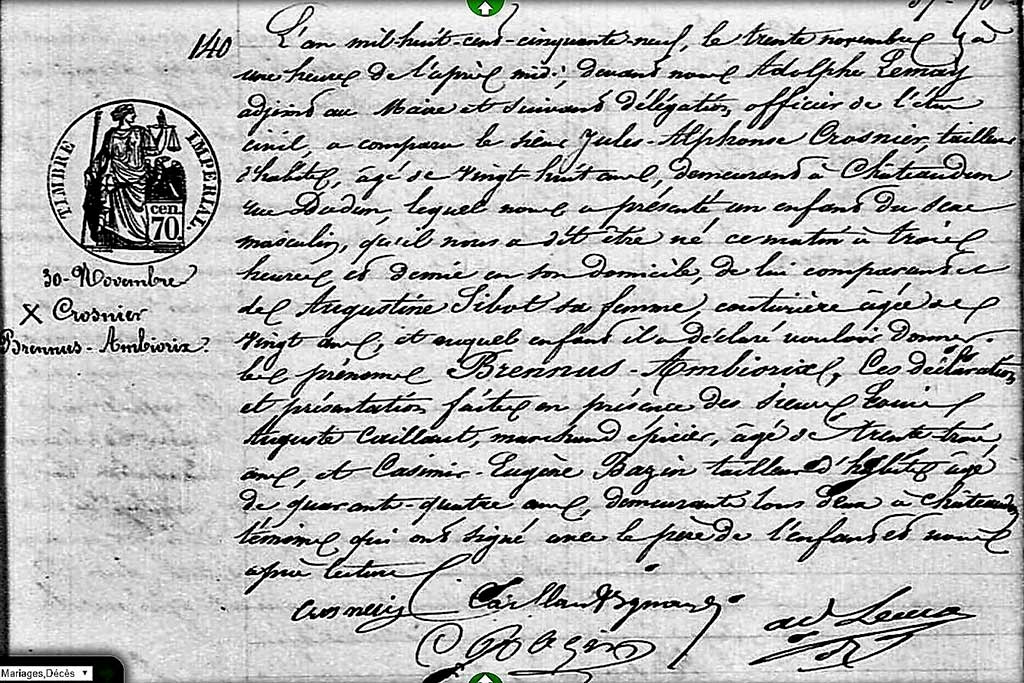 140
L'an mil huit-cent-cinquante-neuf, le trente novembre à
une heure de l'après midi, devant nous Adolphe Lemay
adjoint au Maire et suivant délégation, officier de l'état
civil, a comparu le sieur Jules-Alphonse Crosnier, tailleur
d'habits, âgé de vingt huit ans, demeurant à Châteaudun
rue Dodun, lequel nous a présenté un enfant du sexe
masculin, qu'il nous a dit être né ce matin à trois
heures et demie en son domicile, de lui comparant et
de Augustine Sibot sa femme, couturière âgée de
vingt ans, et auquel enfant il a déclaré vouloir donner
les prénoms Brennus-Ambiorix, Ces déclaration
et présentation faites en présence des sieurs Louis
Auguste Caillaut, marchand épicier, âgé de trente-trois
ans, et Casimir-Eugène Bazin tailleur d'habits âgé
de quarante-quatre ans, demeurants tous deux à Châteaudun
témoins qui ont signé avec le père de l'enfant et nous
après lecture
Crosnier
Bazin
ad Lemay
TIMBRE IMPERIAL.
cen.
70
30-Novembre
X Crosnier
Brennus-Ambiorix.
Mariages,Décès